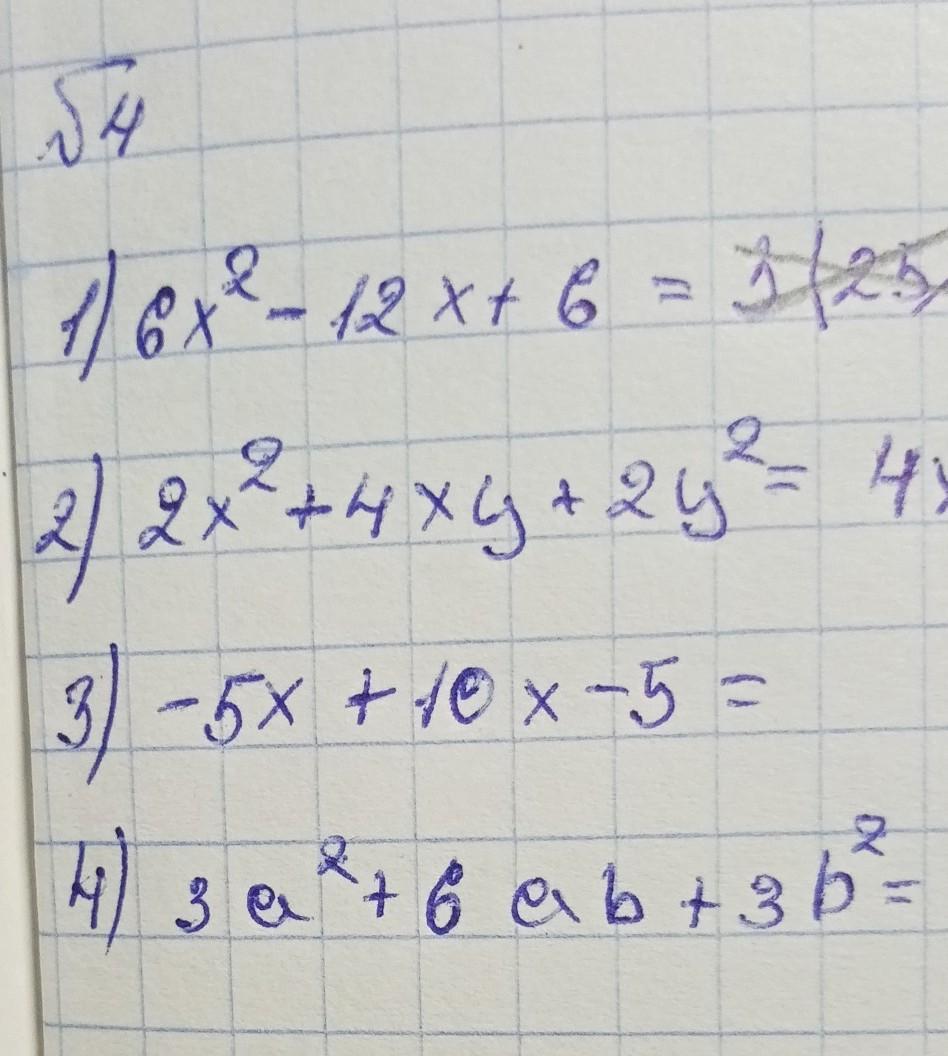 √4
1) 6x² - 12x + 6 =
2) 2x² + 4xy + 2y² = 4
3) -5x + 10x - 5 =
4) 3a² + 6ab + 3b² =